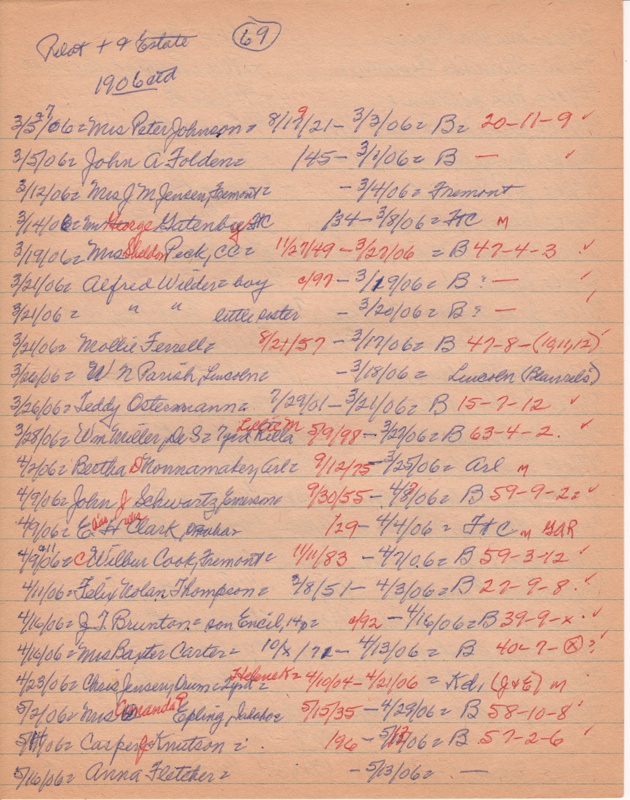 69
Pilot + & Estate
1906 ctd
3/5+7/06 = Mrs Peter Johnson = 8/19/21 - 3/3/06 = B = 20-11-9 ✓
3/5/06 = John A Folden = /45 - 3/1/06 = B — ✓
3/12/06 = Mrs J M Jensen, Fremont = - 3/4/06 = Fremont
3/14/06 = George Gatenby, FtC /34 - 3/8/06 = FtC M
3/19/06 = Mrs Sheldon Peck, CC = 11/27/49 - 3/27/06 = B 47-4-3 ✓
3/21/06 = Alfred Wilder = boy c/97 - 3/19/06 = B ? —
3/21/06 = " " little sister - 3/20/06 = B ? —
3/21/06 = Mollie Ferrell = 8/21/57 - 3/17/06 = B 47-8-(10,11,12) ✓
3/26/06 = W N Parish, Lincoln = - 3/18/06 = Lincoln
3/26/06 = Teddy Ostermann = 7/29/01 - 3/21/06 = B 15-7-12 ✓
3/28/06 = Wm Miller, De S = Lettie M 5/9/98 - 3/27/06 = B 63-4-2 ✓
4/2/06 = Bertha D Nonnamaker, Arl = 9/12/75 - 3/25/06 = Arl M
4/9/06 = John J Schwartz, Emerson 9/30/55 - 4/8/06 = B 59-9-2 = ✓
4/9/06 = E Clark, Omaha /29 - 4/4/06 = FtC M GAR
4/9+11/06 = C Wilbur Cook, Fremont = 11/11/83 - 4/7/06 = B 59-3-12 ✓
4/11/06 = Felix Nolan Thompson = 2/8/51 - 4/3/06 = B 27-9-8 ✓
4/16/06 = J T Brunton = son Encil, 14y = c/92 - 4/16/06 = B 39-9-x ✓
4/16/06 = Mrs Baxter Carter = 10/x/71 - 4/13/06 = B 40-7-x ?
4/23/06 = Chris Jensen, Orum = Helene K = 4/10/04 - 4/21/06 = Kd, (J&E) M
5/2/06 = Mrs Amanda P Epling, Idaho = 5/15/35 - 4/29/06 = B 58-10-8 ✓
5/14/06 = Casper J Knutson = 1/96 - 5/12/06 = B 57-2-6 ✓
5/16/06 = Anna Fletcher = - 5/13/06 = —